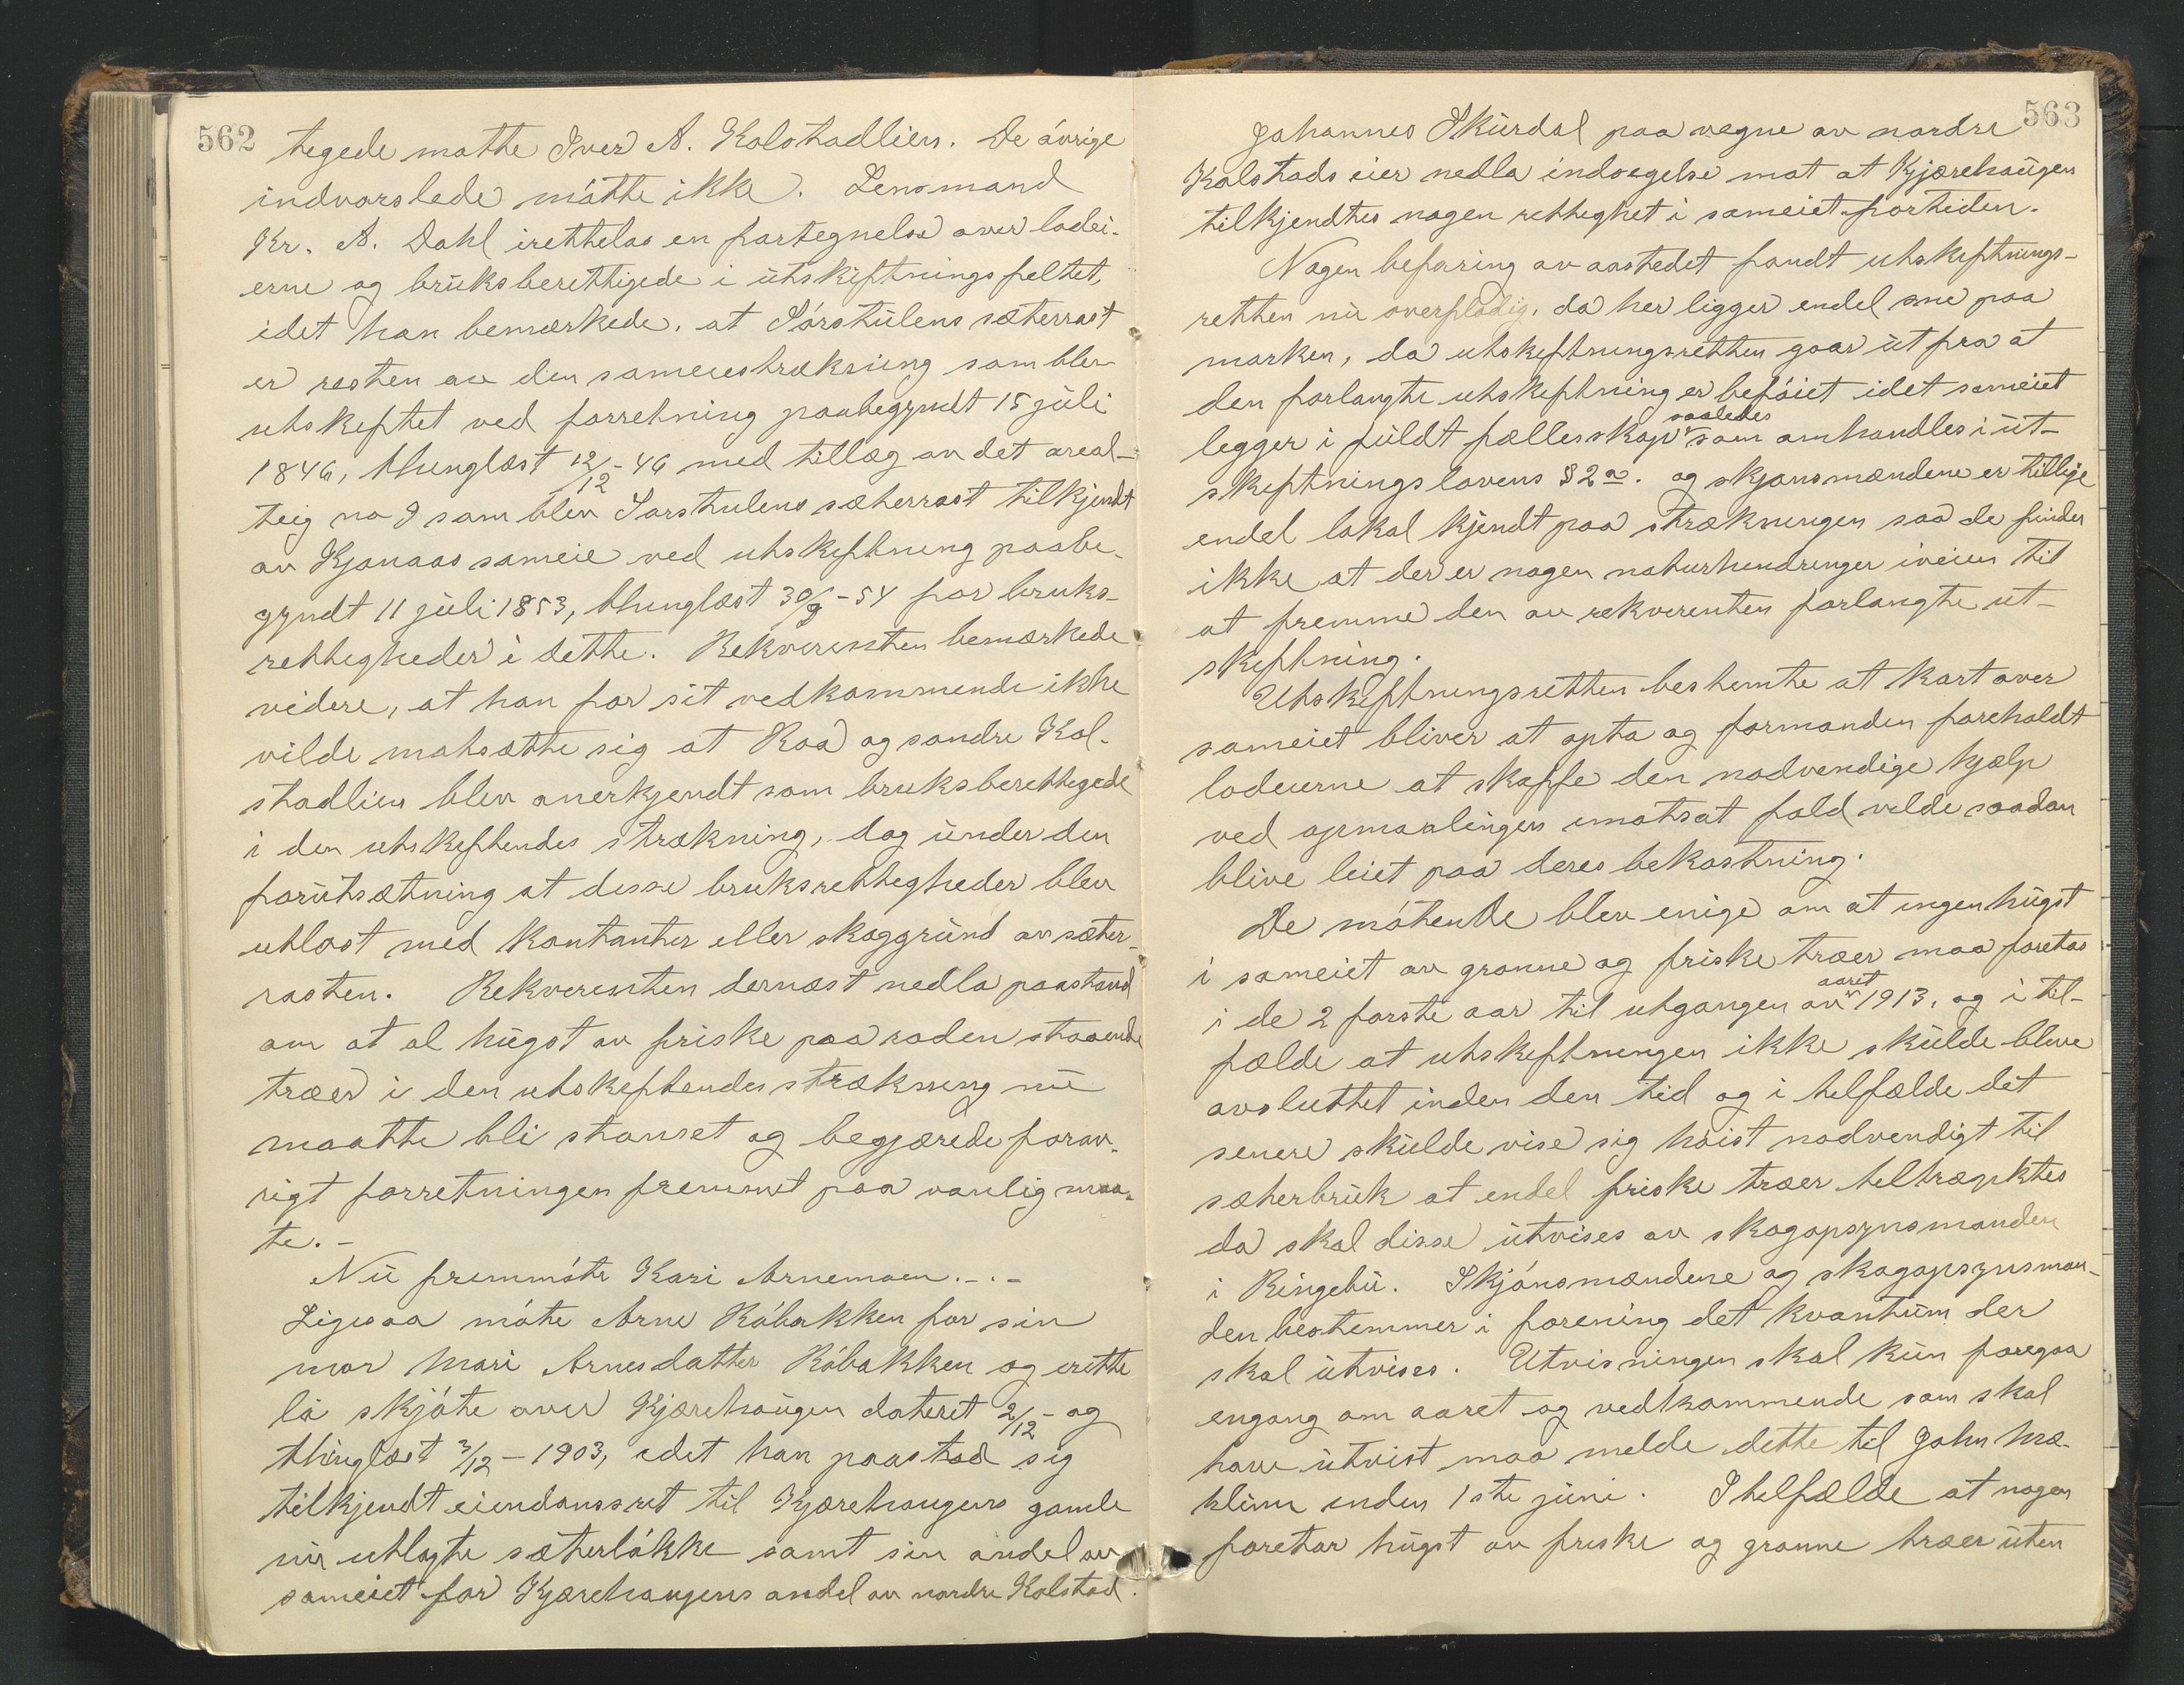 562
tegede møtte Iver A. Kolstadlien. De øvrige
indvarslede møtte ikke. Lensmand
Kr. A. Dahl irettelas en fortegnelse over lodei-
erne og bruksberettigede i utskiftningsfeltet,
idet han bemærkede, at Sørstulens sæterrast
er resten av den sameiestrækning som blev
utskiftet ved forretning paabegyndt 15 juli
1846, thinglæst 12/12-46 med tillæg av det areal-
teig no 9 som blev Sørstulens sæterrast tilkjendt
av Kjønaas sameie ved utskiftning paabe-
gyndt 11 juli 1853, thinglæst 30/9-54 for bruks-
rettigheder i dette. Rekvirenten bemærkede
videre, at han for sit vedkommende ikke
vilde motsætte sig at Roa og søndre Kol-
stadlien blev anerkjendt som bruksberettigede
i den utskiftendes strækning, dog under den
forutsætning at disse bruksrettigheder blev
utløst med kontanter eller skoggrund av sæter-
rasten. Rekvirenten dernæst nedla paastand
om at al hugst av friske paa roden staaende
træer i den utskiftendes strækning nu
maatte bli stanset og begjærede forøv-
rigt forretningen fremmet paa vanlig maa-
te.-
Nu fremmøtte Kari Arnemoen.-.-
Ligesaa møtte Arne Råbakken for sin
mor Mari Arnesdatter Råbakken og irette
la skjøte over Kjærehaugen dateret 2/12- og
thinglæst 3/12-1903, idet han paastod sig
tilkjendt eiendomsret til Kjærehaugens gamle
nu utlagte sæterløkke samt sin andel av
sameiet for Kjærehaugens andel av nordre Kolstad.
563
Johannes Skurdal paa vegne av nordre
Kolstads eier nedla indsigelse mot at Kjærehaugen
tilkjendtes nogen rettighet i sameiet fortiden.
Nogen befaring av aastedet fandt utskiftnings-
retten nu overflødig, da her ligger endel sne paa
marken, da utskiftningsretten gaar ut fra at
den forlangte utskiftning er beføiet idet sameiet
ligger i fuldt fællesskap saaledes som omhandles i ut-
skiftningslovens § 2 a. og skjønsmændene er tillige
endel lokal kjendt paa strækningen saa de finder
ikke at der er nogen naturhindringer iveien til
at fremme den av rekvirenten forlangte ut-
skiftning.
Utskiftningsretten bestemte at kart over
sameiet bliver at opta og formanden foreholdt
lodeierne at skaffe den nødvendige hjælp
ved opmaalingen imotsat fald vilde saadan
blive leiet paa deres bekostning.
De møtende blev enige om at ingen hugst
i sameiet av grønne og friske træer maa foretas
i de 2 første aar til utgangen av aaret 1913, og i til-
fælde at utskiftningen ikke skulde blive
avsluttet inden den tid og i tilfælde det
senere skulde vise sig høist nødvendigt til
sæterbruk at endel friske træer tiltrængktes
da skal disse utvises av skogopsynsmanden
i Ringebu. Skjønsmændene og skogopsynsman-
den bestemmer i forening det kvantum der
skal utvises. Utvisningen skal kun foregaa
engang om aaret og vedkommende som skal
have utvist maa melde dette til John Mæ-
hlum inden 1ste juni. I tilfælde at nogen
foretar hugst av friske og grønne træer uten